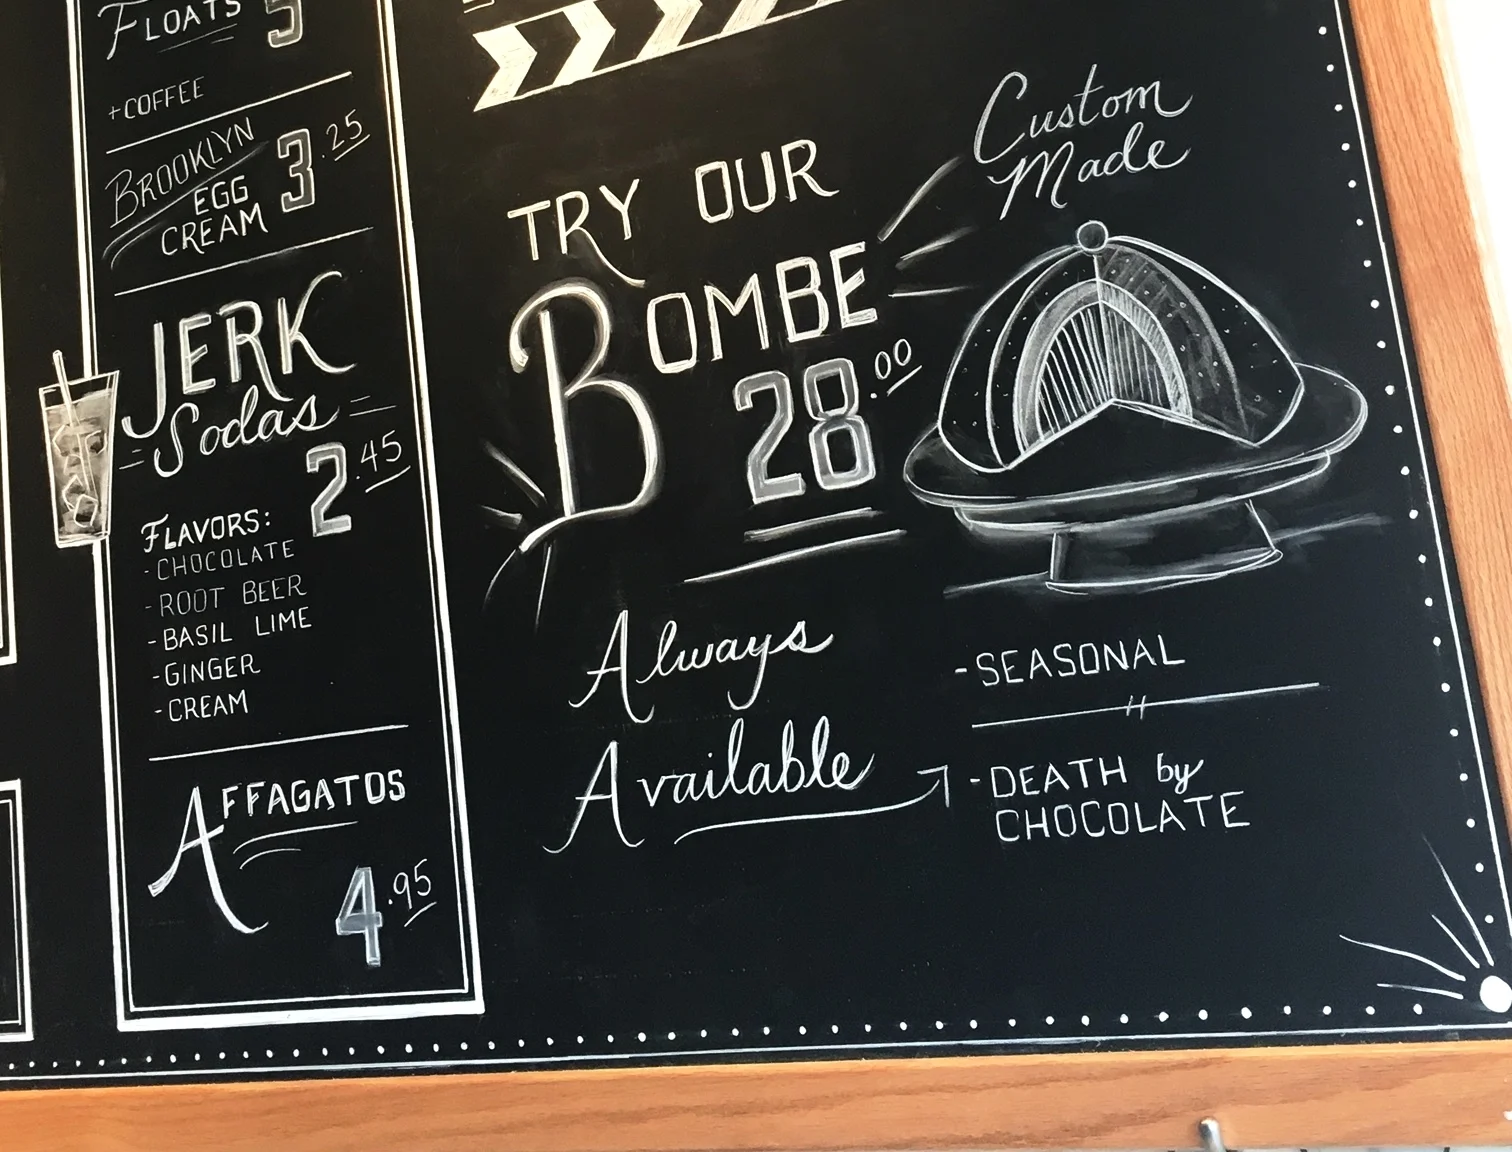 FLOATS 5
+COFFEE
BROOKLYN
EGG
CREAM
3.25
JERK
Sodas
2.45
FLAVORS:
-CHOCOLATE
-ROOT BEER
-BASIL LIME
-GINGER
-CREAM
AFFAGATOS
4.95
TRY OUR
BOMBE
28.00
Custom
Made
Always
Available
-SEASONAL
-DEATH by
CHOCOLATE